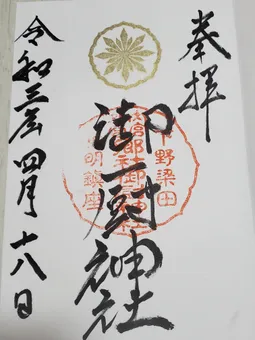 奉拝
御厨神社
令和三年四月十八日
下野梁田
明鎮座